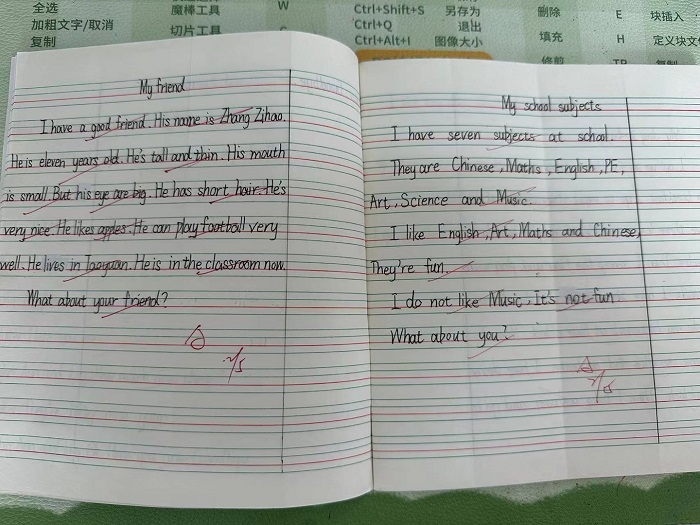 全选
加粗文字/取消
复制
魔棒工具 W
切片工具
Ctrl+Shift+S 另存为
Ctrl+Q 退出
Ctrl+Alt+I 图像大小
删除 E 块插入
填充 H 定义块文
修剪 TR
My friend
I have a good friend. His name is Zhang Zihao.
He is eleven years old. He's tall and thin. His mouth
is small. But his eye are big. He has short hair. He's
very nice. He likes apples. He can play football very
well. He lives in Taoyuan. He is in the classroom now.
What about your friend?
A
My school subjects
I have seven subjects at school.
They are Chinese, Maths, English, PE,
Art, Science and Music.
I like English, Art, Maths and Chinese,
They're fun.
I do not like Music, It's not fun
What about you?
A